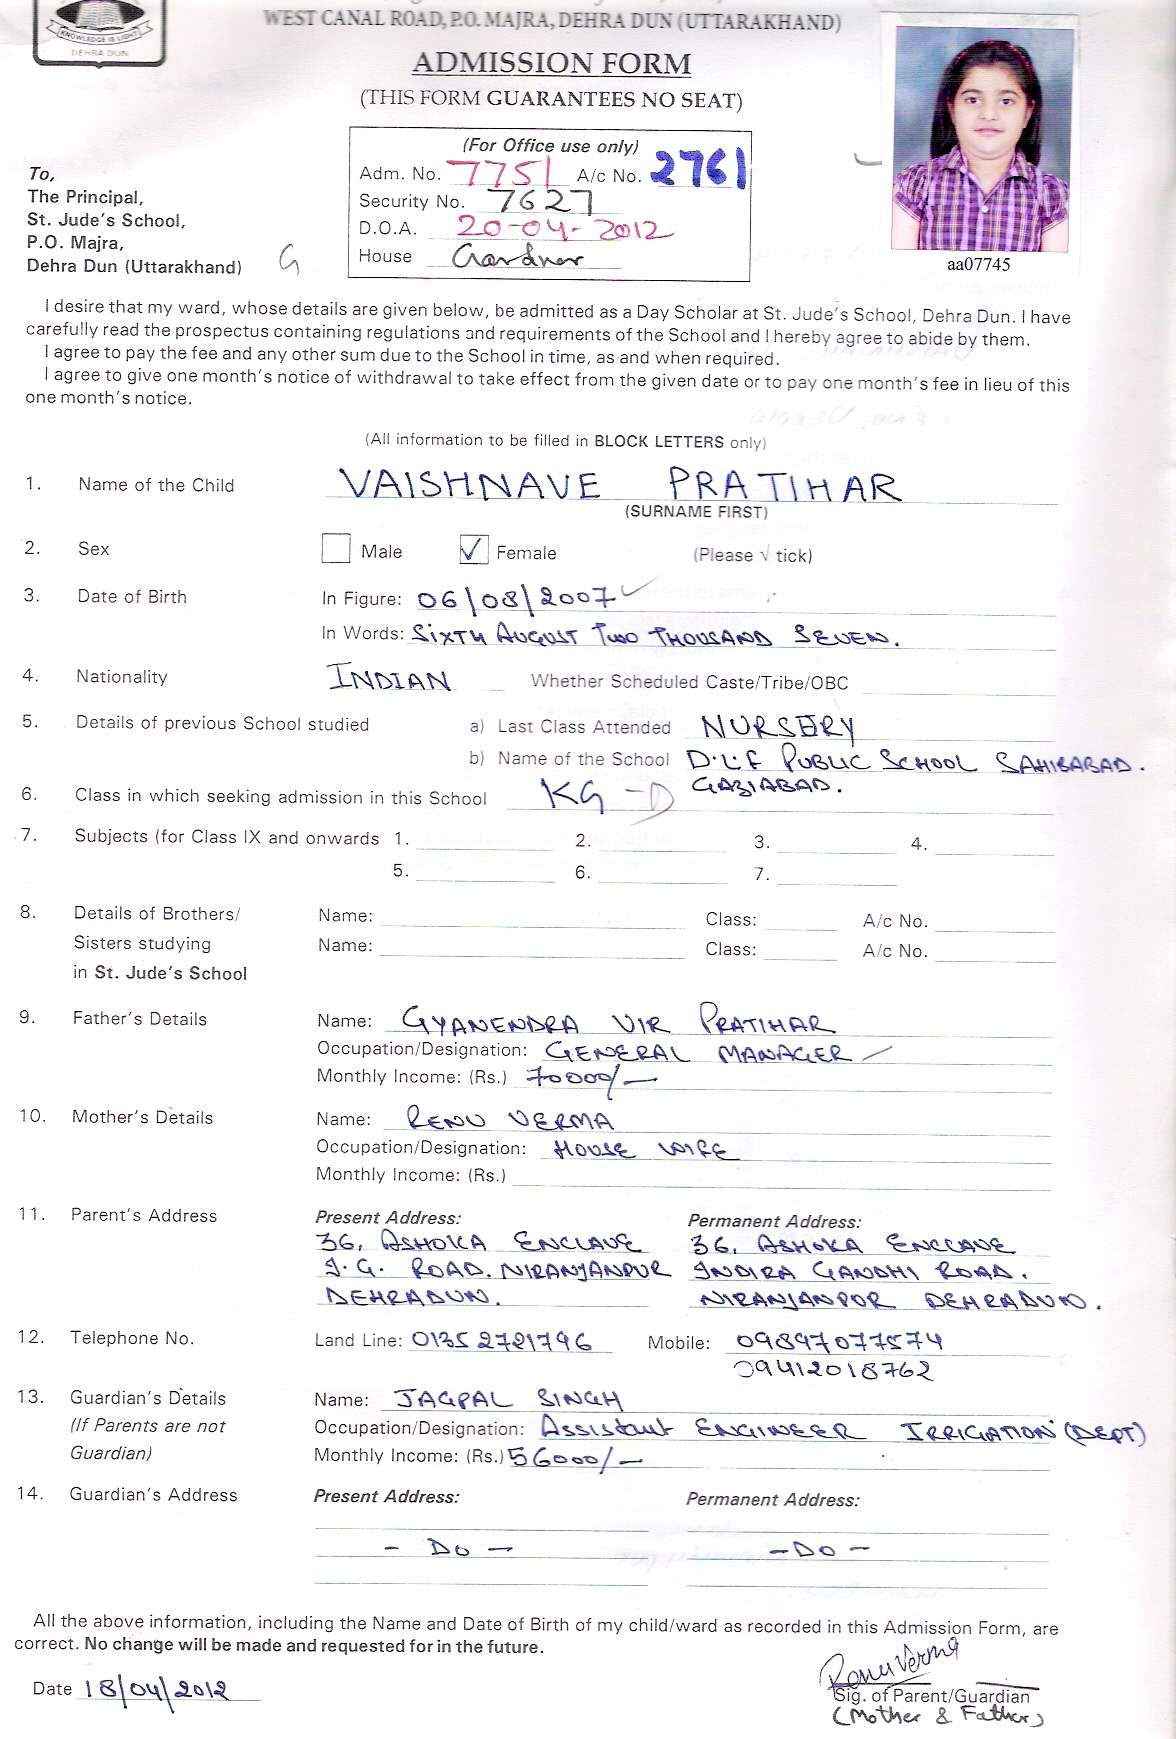 KNOWLEDGE IS LIGHT
DEHRA DUN
WEST CANAL ROAD, P.O. MAJRA, DEHRA DUN (UTTARAKHAND)
ADMISSION FORM
(THIS FORM GUARANTEES NO SEAT)
(For Office use only)
Adm. No. 7751 A/c No. 2761
Security No. 7627
D.O.A. 20-04-2012
House Gardner
To,
The Principal,
St. Jude's School,
P.O. Majra,
Dehra Dun (Uttarakhand) G
aa07745
I desire that my ward, whose details are given below, be admitted as a Day Scholar at St. Jude's School, Dehra Dun. I have
carefully read the prospectus containing regulations and requirements of the School and I hereby agree to abide by them.
I agree to pay the fee and any other sum due to the School in time, as and when required.
I agree to give one month's notice of withdrawal to take effect from the given date or to pay one month's fee in lieu of this
one month's notice.
(All information to be filled in BLOCK LETTERS only)
1. Name of the Child VAISHNAVE PRATIHAR
(SURNAME FIRST)
2. Sex Male ✓ Female (Please √ tick)
3. Date of Birth In Figure: 06/08/2007
In Words: SIXTH AUGUST TWO THOUSAND SEVEN.
4. Nationality INDIAN Whether Scheduled Caste/Tribe/OBC
5. Details of previous School studied a) Last Class Attended NURSERY
b) Name of the School D.L.F PUBLIC SCHOOL SAHIBABAD.
GAZIABAD.
6. Class in which seeking admission in this School KG - D
7. Subjects (for Class IX and onwards 1. 2. 3. 4.
5. 6. 7.
8. Details of Brothers/ Name: Class: A/c No.
Sisters studying Name: Class: A/c No.
in St. Jude's School
9. Father's Details Name: GYANENDRA VIR PRATIHAR
Occupation/Designation: GENERAL MANAGER
Monthly Income: (Rs.) 70000/-
10. Mother's Details Name: RENU VERMA
Occupation/Designation: HOUSE WIFE
Monthly Income: (Rs.)
11. Parent's Address Present Address: Permanent Address:
36, ASHOKA ENCLAVE 36, ASHOKA ENCLAVE
I.G. ROAD. NIRANJANPUR INDIRA GANDHI ROAD.
DEHRADUN. NIRANJANPOR DEHRADUN.
12. Telephone No. Land Line: 0135 2721796 Mobile: 09897077574
09412018762
13. Guardian's Details Name: JAGPAL SINGH
(If Parents are not Occupation/Designation: Assistant ENGINEER IRRIGATION (DEPT)
Guardian) Monthly Income: (Rs.) 56000/-
14. Guardian's Address Present Address: Permanent Address:
- DO - - DO -
All the above information, including the Name and Date of Birth of my child/ward as recorded in this Admission Form, are
correct. No change will be made and requested for in the future.
Renu Verma
Date 18/04/2012 Sig. of Parent/Guardian
(Mother & Father)